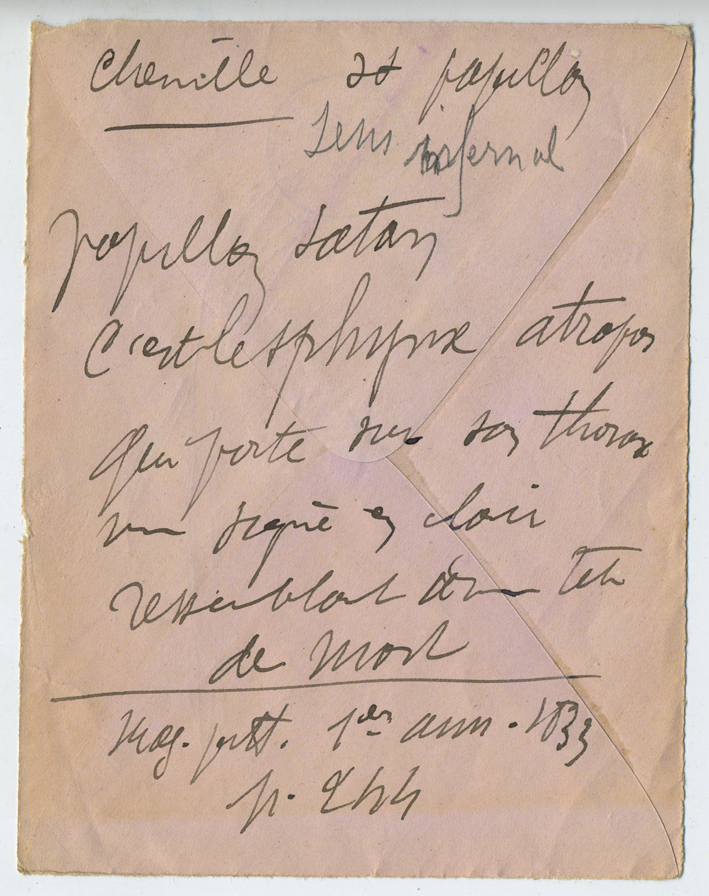 Chenille et papillon
Sens infernal
papillon satan
C'est le sphynx atropos
qui porte sur son thorax
un signe en clair
ressemblant à une tete
de mort
Mag. pitt. 1ere ann. 1833
p. 244